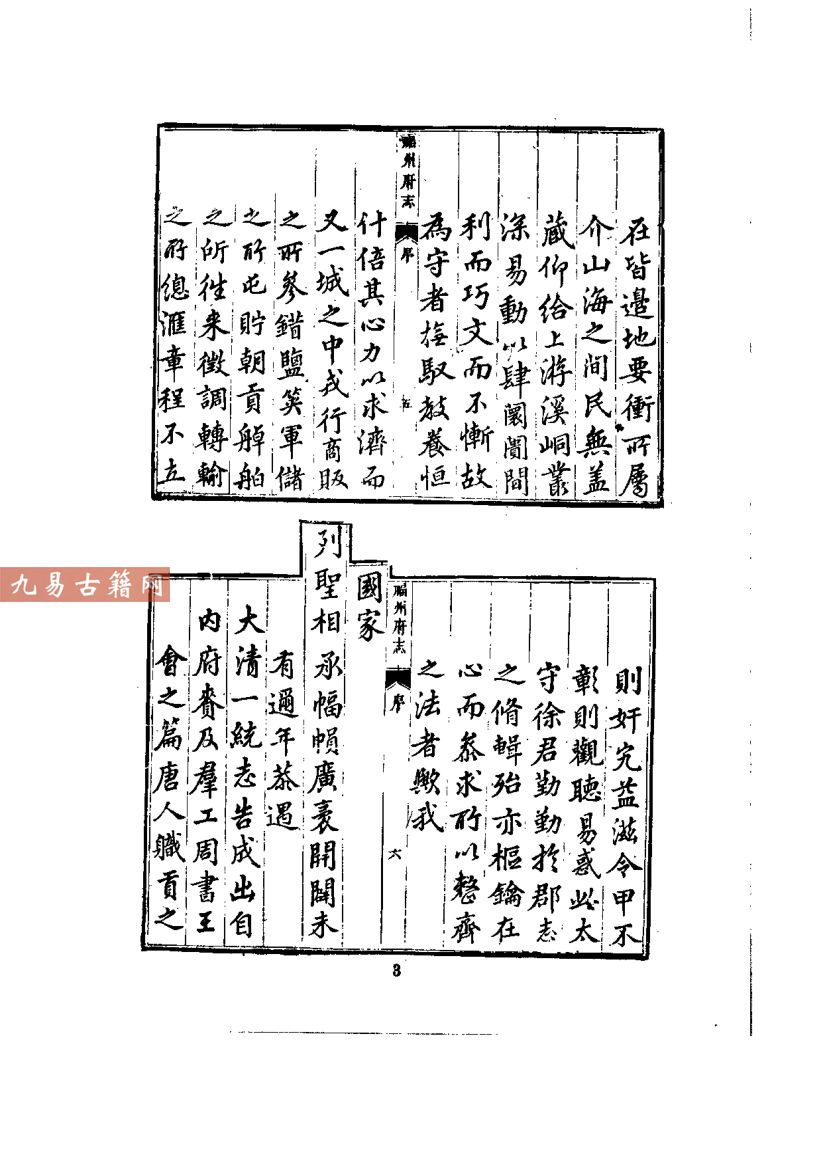 在皆邉地要衝所屬
介山海之間民無蓋
蔵仰給上游溪峒叢
深易動以肆闤闠間
利而巧文而不慚故
為守者撫馭教養恒
福州府志
序
五
什倍其心力以求濟而
又一城之中戎行商販
之所參錯鹽筴軍儲
之所屯貯朝貢艀舶
之所徃来徴調轉輸
之所總滙章程不立
則奸宄益滋令甲不
彰則觀聽易惑此太
守徐君勤勤於郡志
之脩輯殆亦樞鑰在
心而叅求所以整齊
之法者歟我
福州府志
序
六
國家
列聖相承幅幀廣袤開闢未
有邇年恭遇
大清一統志告成出自
内府賚及羣工周書王
會之篇唐人職貢之
3
九易古籍网